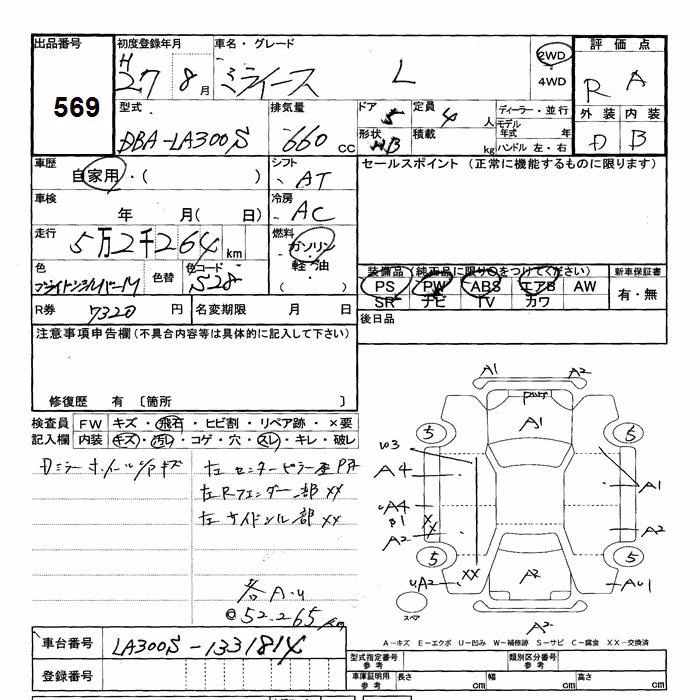 出品番号
569
初度登録年月
H
27 8月
車名・グレード
ミライース L
2WD
・
4WD
評価点
R A
外装 内装
D B
型式
DBA-LA300S
排気量
660 CC
ドア 5
定員 4 人
形状 HB
積載 kg
ディーラー・並行
モデル
年式 年
ハンドル 左・右
車歴
自家用・( )
シフト
AT
セールスポイント (正常に機能するものに限ります)
車検
年 月( 日)
冷房
AC
走行
5万2千264 km
燃料
ガソリン
軽・油
( )
色
色替
色コード
S28
装備品 (純正品に限り○をつけてください)
PS PW ABS エアB AW
SR ナビ TV カワ
新車保証書
有・無
R券 7320 円
名変期限 月 日
後日品
注意事項申告欄 (不具合内容等は具体的に記入して下さい)
修復歴 有 〔箇所 〕
検査員
記入欄
FW キズ・飛石・ヒビ割・リペア跡・×要
内装 キズ・汚レ・コゲ・穴・スレ・キレ・破レ
左センターピラー
左Rフェンダー一部 XX
左サイドシル部 XX
各A・U
52.265km
A1 A2
A1
5 5
W3
A4
A1
UA4
B1
X
X
A2
A2
5 5
UA2
XX
A2
AU1
スペア
A2
A-キズ E-エクボ U-凹み W-補修跡 S-サビ C-腐食 XX-交換済
車台番号
LA300S-1331814
登録番号
型式指定番号
参考
類別区分番号
参考
車庫証明用
参考
長さ cm
幅 cm
高さ cm